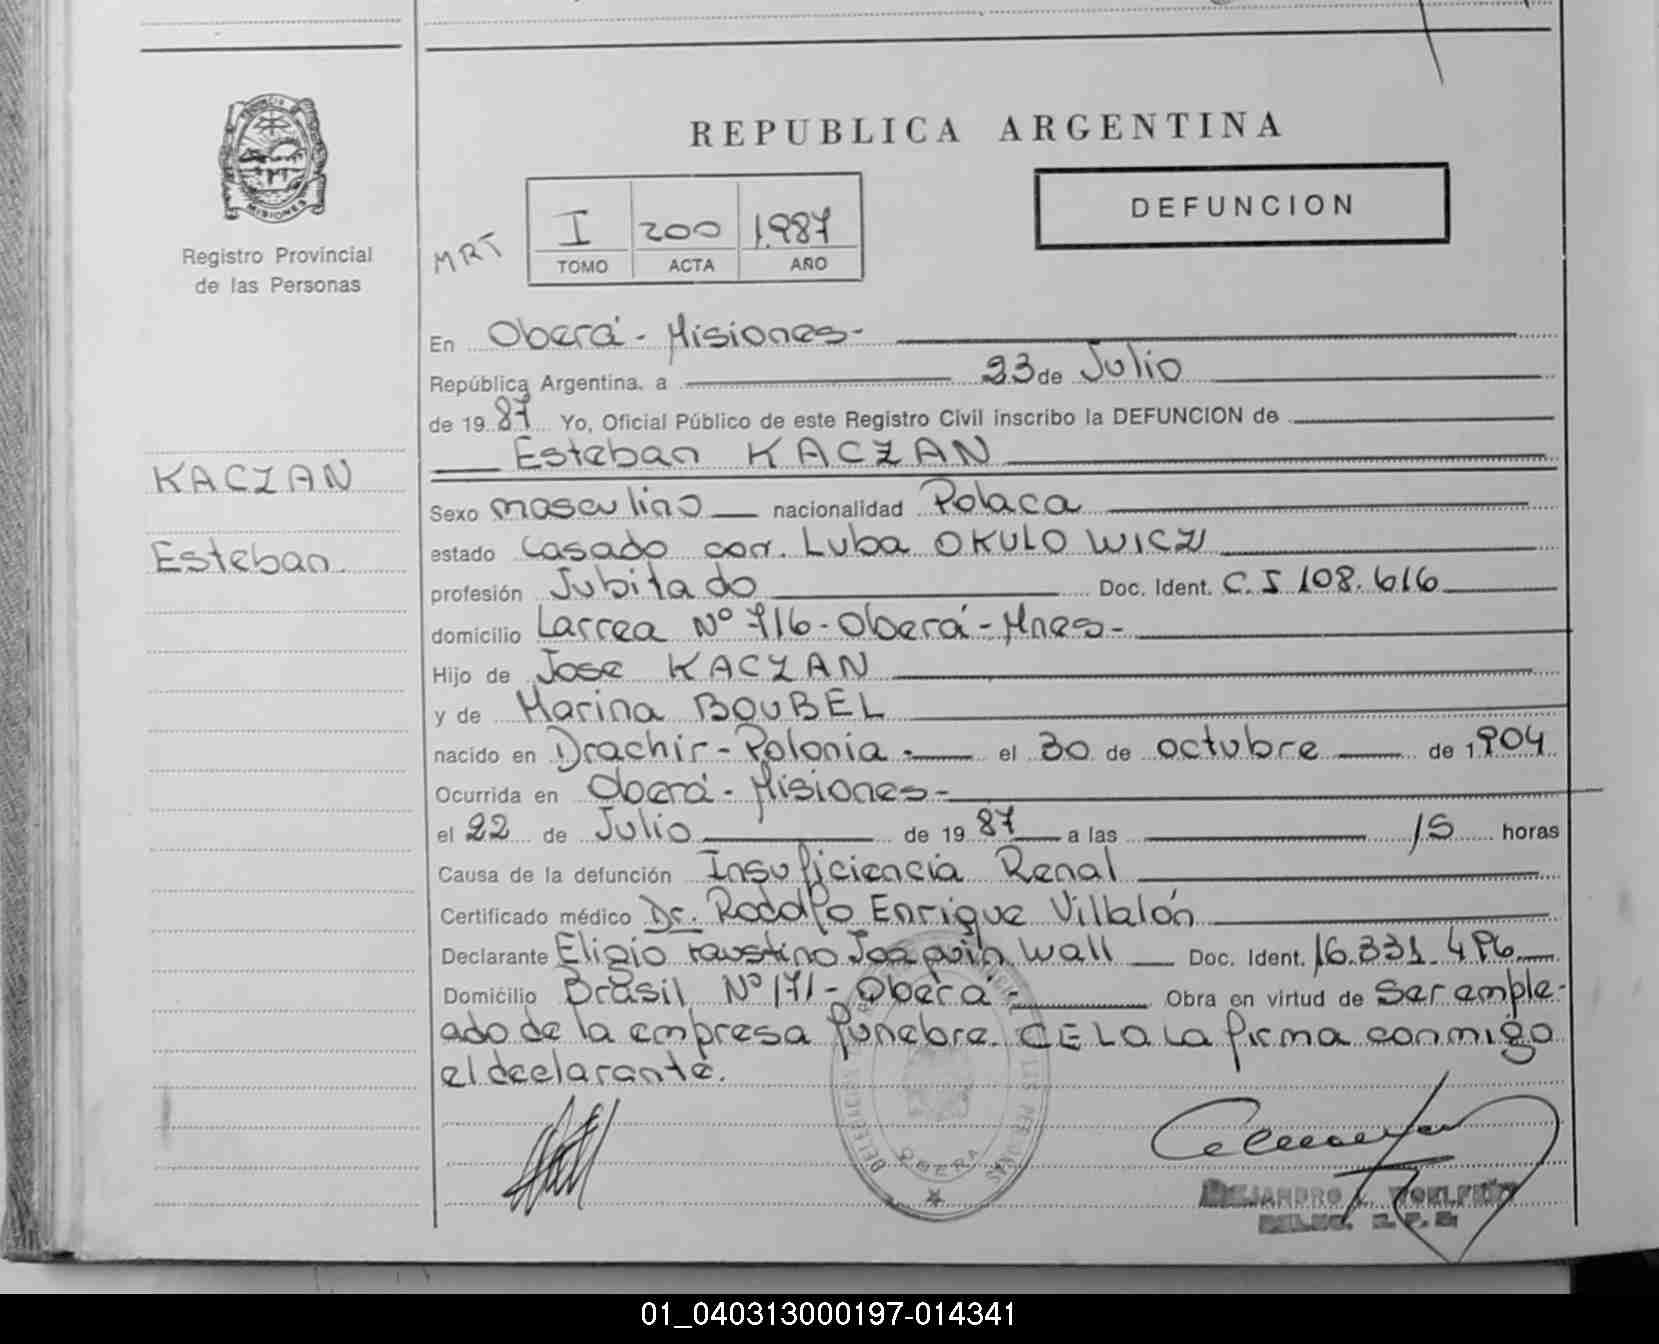 REPUBLICA ARGENTINA
DEFUNCION
MISIONES
Registro Provincial
de las Personas
MRT
I 200 1.987
TOMO ACTA AÑO
En Oberá - Misiones-
República Argentina, a 23 de Julio
de 19 87 Yo, Oficial Público de este Registro Civil inscribo la DEFUNCION de
Esteban KACZAN
KACZAN
Esteban.
Sexo masculino nacionalidad Polaca
estado casado con. Luba OKULOWICZ
profesión Jubilado Doc. Ident. C.I 108.616
domicilio Larrea Nº 716-Oberá-Mnes-
Hijo de Jose KACZAN
y de Marina BOUBEL
nacido en Drachir-Polonia.- el 30 de octubre de 1904
Ocurrida en Oberá - Misiones-
el 22 de Julio de 19 87 a las 15 horas
Causa de la defunción Insuficiencia Renal
Certificado médico Dr. Rodolfo Enrique Villalón
Declarante Eligio Faustino Joaquin Wall Doc. Ident. 16.331.496
Domicilio Brasil Nº 171- Oberá- Obra en virtud de Ser emple-
ado de la empresa funebre. CELO La firma conmigo
el declarante.
DELEGACION LAS PERSONAS
OBERA
ALEJANDRO
DELEG. R. P. P.
01_040313000197-014341